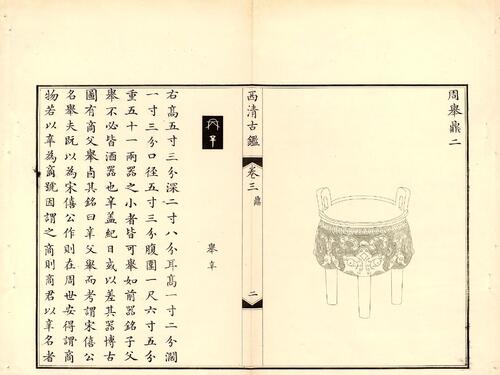 周舉鼎二
西清古鑑
卷三
鼎
二
舉辛
右高五寸三分深二寸八分耳高一寸二分濶
一寸三分口徑五寸三分腹圍一尺六寸五分
重五十一兩器之小者皆可舉如前器銘子父
舉不必皆酒器也辛蓋紀日或以差其器博古
圖有商父舉卣其銘曰辛父舉而考謂宋僖公
名舉夫既以為宋僖公作則在周世安得謂商
物若以辛為商號因謂之商則商君以辛名者